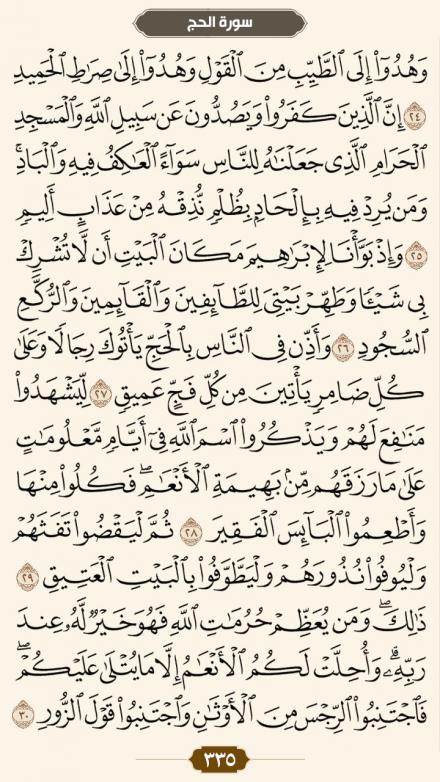 سورة الحج
وَهُدُوٓا۟ إِلَى ٱلطَّيِّبِ مِنَ ٱلْقَوْلِ وَهُدُوٓا۟ إِلَىٰ صِرَٰطِ ٱلْحَمِيدِ
٢٤ إِنَّ ٱلَّذِينَ كَفَرُوا۟ وَيَصُدُّونَ عَن سَبِيلِ ٱللَّهِ وَٱلْمَسْجِدِ
ٱلْحَرَامِ ٱلَّذِى جَعَلْنَٰهُ لِلنَّاسِ سَوَآءً ٱلْعَٰكِفُ فِيهِ وَٱلْبَادِ ۚ
وَمَن يُرِدْ فِيهِ بِإِلْحَادٍۭ بِظُلْمٍ نُّذِقْهُ مِنْ عَذَابٍ أَلِيمٍ
٢٥ وَإِذْ بَوَّأْنَا لِإِبْرَٰهِيمَ مَكَانَ ٱلْبَيْتِ أَن لَّا تُشْرِكْ
بِى شَيْـًٔا وَطَهِّرْ بَيْتِىَ لِلطَّآئِفِينَ وَٱلْقَآئِمِينَ وَٱلرُّكَّعِ
ٱلسُّجُودِ ٢٦ وَأَذِّن فِى ٱلنَّاسِ بِٱلْحَجِّ يَأْتُوكَ رِجَالًا وَعَلَىٰ
كُلِّ ضَامِرٍ يَأْتِينَ مِن كُلِّ فَجٍّ عَمِيقٍ ٢٧ لِّيَشْهَدُوا۟
مَنَٰفِعَ لَهُمْ وَيَذْكُرُوا۟ ٱسْمَ ٱللَّهِ فِىٓ أَيَّامٍ مَّعْلُومَٰتٍ
عَلَىٰ مَا رَزَقَهُم مِّنۢ بَهِيمَةِ ٱلْأَنْعَٰمِ ۖ فَكُلُوا۟ مِنْهَا
وَأَطْعِمُوا۟ ٱلْبَآئِسَ ٱلْفَقِيرَ ٢٨ ثُمَّ لْيَقْضُوا۟ تَفَثَهُمْ
وَلْيُوفُوا۟ نُذُورَهُمْ وَلْيَطَّوَّفُوا۟ بِٱلْبَيْتِ ٱلْعَتِيقِ ٢٩
ذَٰلِكَ ۖ وَمَن يُعَظِّمْ حُرُمَٰتِ ٱللَّهِ فَهُوَ خَيْرٌ لَّهُۥ عِندَ
رَبِّهِۦ ۗ وَأُحِلَّتْ لَكُمُ ٱلْأَنْعَٰمُ إِلَّا مَا يُتْلَىٰ عَلَيْكُمْ ۖ
فَٱجْتَنِبُوا۟ ٱلرِّجْسَ مِنَ ٱلْأَوْثَٰنِ وَٱجْتَنِبُوا۟ قَوْلَ ٱلزُّورِ ٣٠
٣٣٥